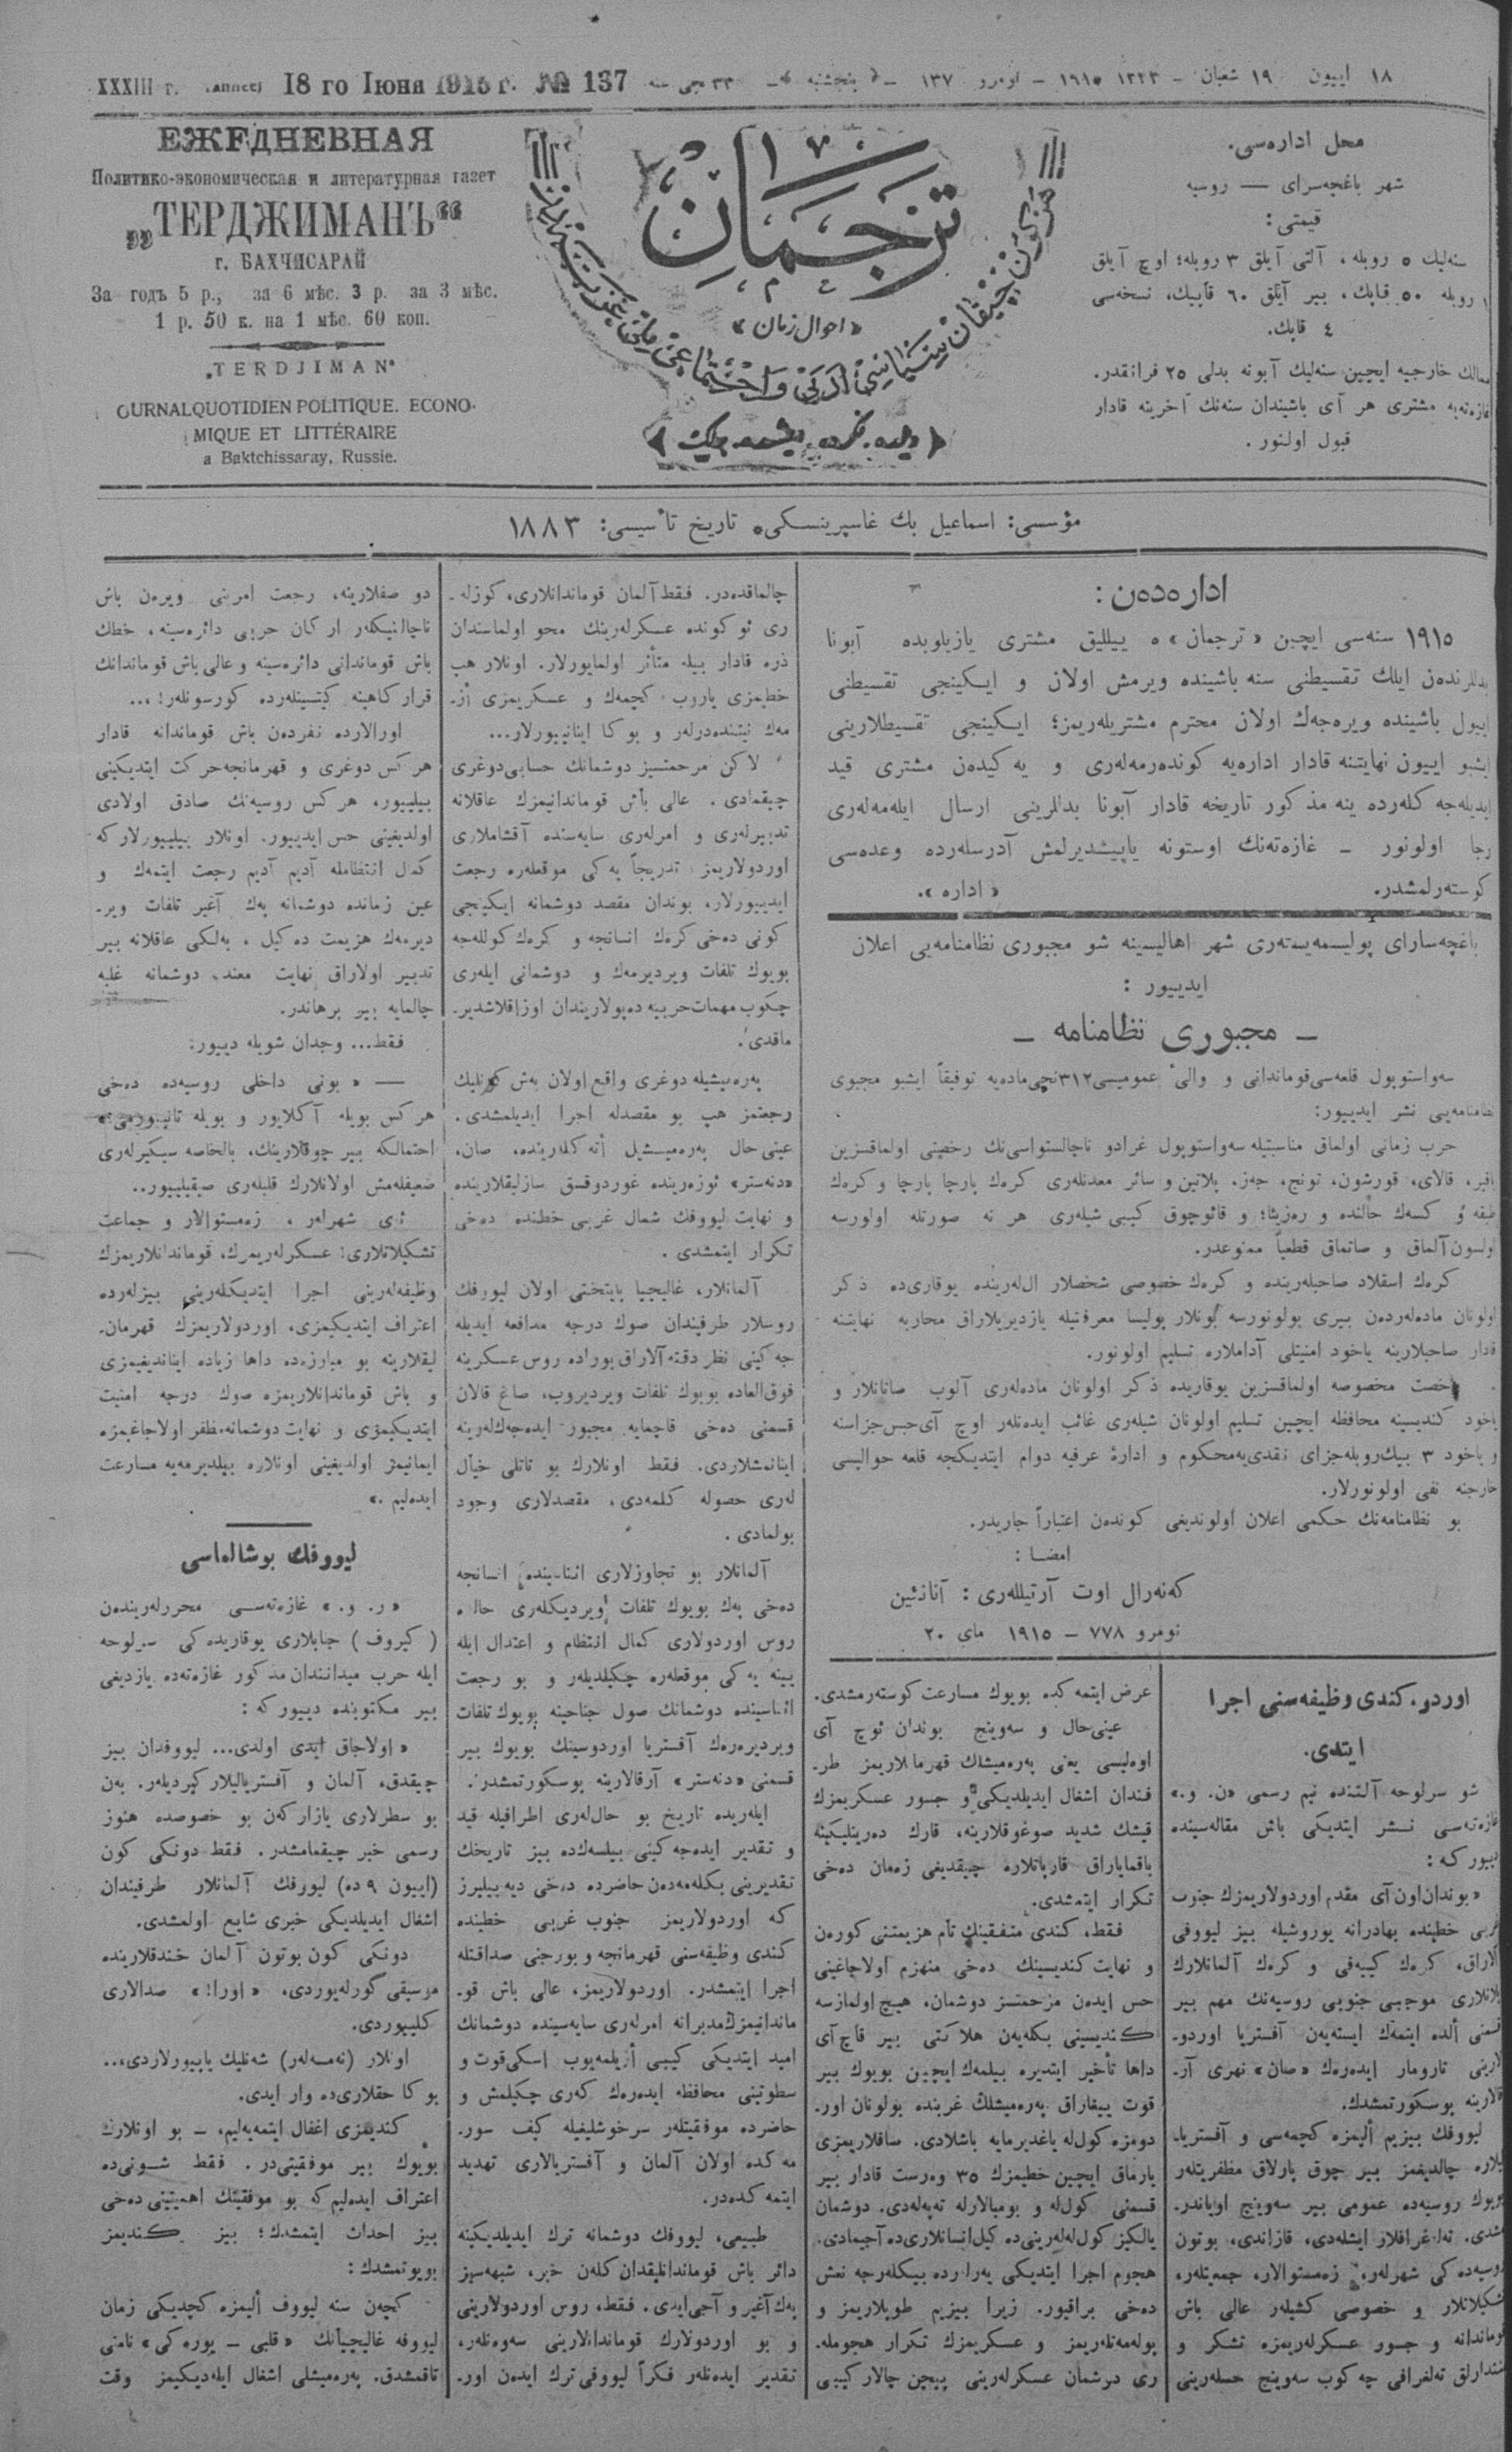 XXXIII г. 18 го Іюня 1915 г. № 137
١٨ اييون ١٩ شعبان - ١٣٣٣ - ١٩١٥ - نومرو ١٣٧ - پنجشنبه - ٣٣ نجی سنه
ЕЖЕДНЕВНАЯ
Политико-экономическая и литературная газет
„ТЕРДЖИМАНЪ“
г. БАХЧИСАРАЙ
За годъ 5 р., за 6 мѣс. 3 р. за 3 мѣс.
1 р. 50 к. на 1 мѣс. 60 коп.
„TERDJIMAN“
OURNALQUOTIDIEN POLITIQUE. ECONO-
MIQUE ET LITTÉRAIRE
a Baktchissaray, Russie.
ترجمان
«احوال زمان»
﴿ ديلده، فكرده، ايشده برلك ﴾
محل اداره‌سی.
شهر باغچه‌سرای — روسيه
قيمتی:
سنه‌ليك ٥ روبله، آلتی آيلق ٣ روبله؛ اوچ آيلق
١ روبله ٥٠ قاپك، بير آيلق ٦٠ قاپيك، نسخه‌سی
٤ قاپك.
ممالك خارجيه ايچين سنه‌ليك آبونه بدلی ٢٥ فرانقدر.
غازه‌ته‌يه مشتری هر آی باشيندان سنه‌نك آخرينه قادار
قبول اولنور.
مؤسسی: اسماعيل بك غاسپرينسكی. تاريخ تأسيسی: ١٨٨٣
اداره‌ده‌ن:
١٩١٥ سنه‌سی ايچين «ترجمان» ه ييلليق مشتری يازيلوبده آبونا
بدللرنده‌ن ايلك تقسيطنی سنه باشينده ويرمش اولان و ايكينجی تقسيطنی
اييول باشينده ويره‌جه‌ك اولان محترم مشتريله‌ريمز؛ ايكينجی تقسيطلارينی
ايشبو اييون نهايتنه قادار اداره‌يه كونده‌رمه‌له‌ری و يه كيده‌ن مشتری قيد
ايديله‌جه كله‌رده ينه مذكور تاريخه قادار آبونا بدللرينی ارسال ايله‌مه‌له‌ری
رجا اولونور - غازه‌ته‌نك اوستونه ياپيشديرلمش آدرسله‌رده وعده‌سی
كوسته‌رلمشدر. «اداره».
باغچه‌سارای پوليسمه‌يسته‌ری شهر اهاليسينه شو مجبوری نظامنامه‌يی اعلان
ايدييور:
- مجبوری نظامنامه -
سه‌واستوپول قلعه‌سی قوماندانی و والیٔ عموميسی ٣١٢نچی ماده‌يه توفيقاً ايشبو مجبوی
نظامنامه‌يی نشر ايدييور:
حرب زمانی اولماق مناسبتيله سه‌واستوپول غرادو ناچالستواسی‌نك رخصتی اولماقسزين
باقير، قالای، قورشون، تونچ، جه‌ز، پلاتين و سائر معدنله‌ری كره‌ك پارچا پارچا و كره‌ك
اولسون آلماق و صاتماق قطعياً ممنوعدر.
كره‌ك اسقلاد صاحبله‌رينده و كره‌ك خصوصی شخصلار ال‌له‌رينده يوقاری‌ده ذكر
اولونان ماده‌له‌رده‌ن بيری بولونورسه بونلار پوليسا معرفتيله يازديريلاراق محاربه نهايتنه
قادار صاحبلارينه ياخود امنيتلی آداملاره تسليم اولونور.
رخصت مخصوصه اولماقسزين يوقاريده ذكر اولونان ماده‌له‌ری آلوب صاتانلار و
ياخود كنديسينه محافظه ايچين تسليم اولونان شيله‌ری غائب ايده‌نله‌ر اوچ آی حبس جزاسنه
و ياخود ٣ بيك روبله جزای نقدی‌يه محكوم و ادارهٔ عرفيه دوام ايتديكجه قلعه حواليسی
خارجنه نفی اولونورلار.
بو نظامنامه‌نك حكمی اعلان اولونديغی كونده‌ن اعتباراً جاريدر.
امضا:
كه‌نه‌رال اوت آرتيللەری: آنانئين
نومرو ٧٧٨ - ١٩١٥ مای ٢٠
اوردو، كندی وظيفه‌سنی اجرا
ايتدی.
شو سرلوحه آلتنده نيم رسمی «ن. و.»
غازه‌ته‌سی نشر ايتديكی باش مقاله‌سينده
دييور كه:
«بوندان اون آی مقدم اوردولاريمزك جنوب
غربی خطينده بهادرانه يوروشيله بيز ليووفی
آلاراق، كره‌ك كييه‌فی و كره‌ك آلمانلارك
پلانلاری موجبی جنوبی روسيه‌نك مهم بير
قسمنی ألده ايتمه‌ك ايسته‌يه‌ن آفستريا اوردو-
لارينی تارومار ايده‌ره‌ك «صان» نهری آر-
قالارينه پوسكورتمشدك.
ليووفك بيزيم أليمزه كچمه‌سی و آفستريا-
ليلاره چالديغمز بير چوق پارلاق مظفريتله‌ر
بويوك روسيه‌ده عمومی بير سه‌وينچ اوياندر-
مشدی. ته‌له‌غرافلار ايشله‌دی، قازاندی، بوتون
روسيه‌ده كی شهرله‌ر، زه‌مستوالار، جمعيتله‌ر،
تشكيلاتلار و خصوصی كشيله‌ر عالی باش
قومانداانه و جسور عسكرله‌ريمزه تشكر و
منتدارلق ته‌لغرافی چه كوب سه‌وينچ حسله‌رينی
عرض ايتمه كده بويوك مسارعت كوسته‌رمشدی.
عينی حال و سه‌وينچ بوندان ئوچ آی
اوه‌ليسی يه‌نی پەرەميشلك قهرمانلاريمز طر-
فندان اشغال ايديلديكی و جسور عسكريمزك
قيشك شديد صوغوقلارينه، قارك ده‌رينليكينه
باقماياراق قارپاتلاره چيقديغی زه‌مان ده‌خی
تكرار ايتمشدی.
فقط، كندی متفقينك تام هزيمتنی كوره‌ن
و نهايت كنديسينك ده‌خی منهزم اولاجاغينی
حس ايده‌ن مرحمتسز دوشمان، هيچ اولمازسه
كنديسينی بكله‌يه‌ن هلاكتی بير قاچ آی
داها تأخير ايتديره بيلمه‌ك ايچين بويوك بير
قوت ييغاراق پەرەميشلك غربنده بولونان اور-
دومزه كول‌له ياغديرمايه باشلادی. ساقلاريمزی
يارماق ايچين خطيمزك ٣٥ وه‌رست قادار بير
قسمنی كول‌له و بومبالارله ته‌په‌له‌دی. دوشمان
يالكيز كول‌له‌له‌رينی‌ده كيل انسانلاری‌ده آجيمادی.
هجوم اجرا ايتديكی يه‌رارده بيكله‌رجه نعش
ده‌خی براقيور. زيرا بيزيم طوپلاريمز و
پوله‌مه‌تله‌ريمز و عسكريمزك تكرار هجومله-
ری دوشمان عسكرله‌رينی بيچن چالار كيبی
چالماقده‌در. فقط آلمان قوماندانلاری، كوزله-
ری ئو كونده عسكرله‌رينك محو اولماسندان
ذره قادار بيله متأثر اولمايورلار. اونلار هپ
خطيمزی ياروب كچمه‌ك و عسكريمزی أز-
مه‌ك نيتنده‌درلەر و بو كا اينانييورلار...
لاكن مرحمتسيز دوشمانك حسابی دوغری
چيقمادی. عالی باش قوماندانيمزك عاقلانه
تدبيرله‌ری و امرله‌ری سايه‌سنده آقشاملاری
اوردولاريمز تدريجاً يه‌كی موقعله‌ره رجعت
ايدييورلار، بوندان مقصد دوشمانه ايكينجی
كونی ده‌خی كره‌ك انسانجه و كره‌ك كول‌له‌جه
بويوك تلفات ويرديرمه‌ك و دوشمانی ايله‌ری
چكوب مهمات حربيه ده‌پولاريندان اوزاقلاشدير-
ماقدی.
پەرەميشيله دوغری واقع اولان بەش كونليك
رجعتمز هپ بو مقصدله اجرا ايديلمشدی.
عينی حال پەرەميشيل أته كله‌رينده، صان،
«دنه‌ستر» ئوزه‌رينده غوردوقسق سازليقلارينده
و نهايت ليووفك شمال غربی خطنده ده‌خی
تكرار ايتمشدی.
آلمانلار، غاليچيا پايتختی اولان ليووفك
روسلار طرفيندان صوك درجه مدافعه ايديله
جه كينی نظر دقته آلاراق بوراده روس عسكرينه
فوق‌العاده بويوك تلفات ويرديروب، صاغ قالان
قسمنی ده‌خی قاچمايه مجبور ايده‌جه‌ك‌له‌رينه
اينانمشلاردی. فقط اونلارك بو تاتلی خيال
له‌ری حصوله كلمه‌دی، مقصدلاری وجود
بولمادی.
آلمانلار بو تجاوزلاری اثناسينده انسانجه
ده‌خی پەك بويوك تلفات ويرديكله‌ری حالده
روس اوردولاری كمال انتظام و اعتدال ايله
يينه يه كی موقعله‌ره چكيلديله‌ر و بو رجعت
اثناسينده دوشمانك صول جناحينه بويوك تلفات
ويرديره‌ره‌ك آفستريا اوردوسينك بويوك بير
قسمنی «دنه‌ستر» آرقالارينه پوسكورتمشدر.
ايله‌ريده تاريخ بو حال‌له‌ری اطرافيله قيد
و تقدير ايده‌جه كينی بيلسه‌ك‌ده بيز تاريخك
تقديرينی بكله‌مه‌ده‌ن حاضرده ده‌خی ديه بيليرز
كه اوردولاريمز جنوب غربی خطينده
كندی وظيفه‌سنی قهرمانجه و بورجنی صداقتله
اجرا ايتمشدر. اوردولاريمز، عالی باش قو-
ماندانيمزك مدبرانه امرله‌ری سايه‌سينده دوشمانك
اميد ايتديكی كيبی أزيلمه‌يوب اسكی قوت و
سطوتينی محافظه ايده‌ره‌ك كه‌ری چكيلمش و
حاضرده موفقيتله‌ر سرخوشليغيله كيف سور-
مه كده اولان آلمان و آفستريالاری تهديد
ايتمه كده‌در.
طبيعی، ليووفك دوشمانه ترك ايديلديكينه
دائر باش قوماندانليقدان كله‌ن خبر، شبهه‌سيز
پەك آغير و آجی ايدی. فقط، روس اوردولارينی
و بو اوردولارك قوماندانلارينی سه‌وه‌نله‌ر،
تقدير ايده‌نله‌ر فكراً ليووفی ترك ايده‌ن اور-
دو صفلارينه، رجعت امرينی ويره‌ن باش
ناچالنيكلەر اركان حربی دائره‌سينه، خطك
باش قوماندانی دائره‌سينه و عالی باش قوماندانك
قرار كاهينه كيتسينله‌رده كورسونله‌ر!...
اورالارده نفرده‌ن باش قوماندانه قادار
هر كس دوغری و قهرمانجه حركت ايتديكينی
بيلييور، هر كس روسيه‌نك صادق اولادی
اولديغينی حس ايدييور. اونلار بيلييورلار كه
كمال انتظامله آديم آديم رجعت ايتمه‌ك و
عين زمانده دوشمانه پەك آغير تلفات وير-
ديرمه‌ك هزيمت ده كيل، به‌لكی عاقلانه بير
تدبير اولاراق نهايت معند دوشمانه غلبه
چالمايه بير برهاندر.
فقط... وجدان شويله دييور:
— «بونی داخلی روسيه‌ده ده‌خی
هر كس بويله آكلايور و بويله تانييورمی؟»
احتمالكه بير چوقلارينك، بالخاصه سيكيرله‌ری
ضعيفله‌مش اولانلارك قلبله‌ری صيقيلييور..
ئی شهرله‌ر، زه‌مستوالار و جماعت
تشكيلاتلاری! عسكرله‌ريمزك، قوماندانلاريمزك
وظيفه‌له‌رينی اجرا ايتديكله‌رينی بيزله‌رده
اعتراف ايتديكيمزی، اوردولاريمزك قهرمان-
ليقلارينه بو مبارزه‌ده داها زياده اينانديغيمزی
و باش قوماندانلاريمزه صوك درجه امنيت
ايتديكيمزی و نهايت دوشمانه مظفر اولاجاغيمزه
ايمانيمز اولديغينی اونلاره بيلديرمه‌يه مسارعت
ايده‌ليم.»
ليووفك بوشالماسی
«ر. و.» غازه‌ته‌سی محررله‌رينده‌ن
(كيروف) جنابلاری يوقاريده كی سرلوحه
ايله حرب ميداننداان مذكور غازه‌ته‌ده يازديغی
بير مكتوبنده دييور كه:
«اولاجاق ايدی اولدی... ليووفدان بيز
چيقدق، آلمان و آفستريالیلار كيرديله‌ر. بەن
بو سطرلاری يازاركه‌ن بو خصوصده هنوز
رسمی خبر چيقمامشدر. فقط دونكی كون
(اييون ٩ ده) ليووفك آلمانلار طرفيندان
اشغال ايديلديكی خبری شايع اولمشدی.
دونكی كون بوتون آلمان خندقلارينده
موسيقی گورله‌يوردی، «اورا!» صدالاری
كلييوردی.
اونلار (نه‌مسه‌له‌ر) شه‌نليك ياپيورلاردی،..
بو كا حقلاری‌ده وار ايدی.
كنديمزی اغفال ايتمه‌يه‌ليم، - بو اونلارك
بويوك بير موفقيتی‌در. فقط شونی‌ده
اعتراف ايده‌ليم كه بو موفقيتك اهميتينی ده‌خی
بيز احداث ايتمشدك؛ بيز كنديمز
بويوتمشدك:
كچه‌ن سنه ليووف أليمزه كچديكی زمان
ليووفه غاليچيانك «قلبی - يوره كی» نامنی
تاقمشدق. پەرەميشلی اشغال ايله‌ديكيمز وقت